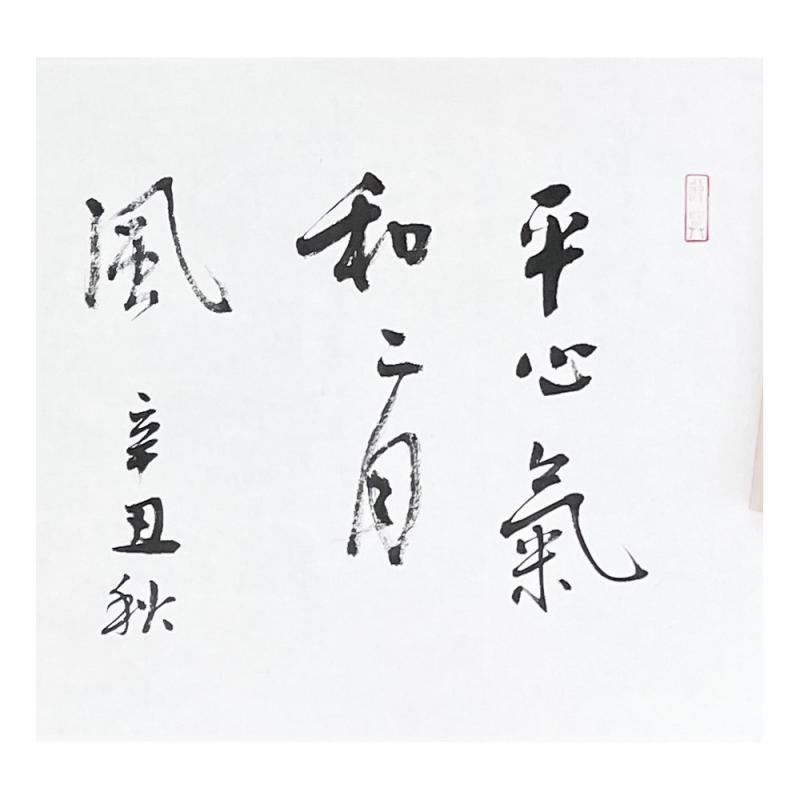 平心氣
和二月
風
辛丑秋